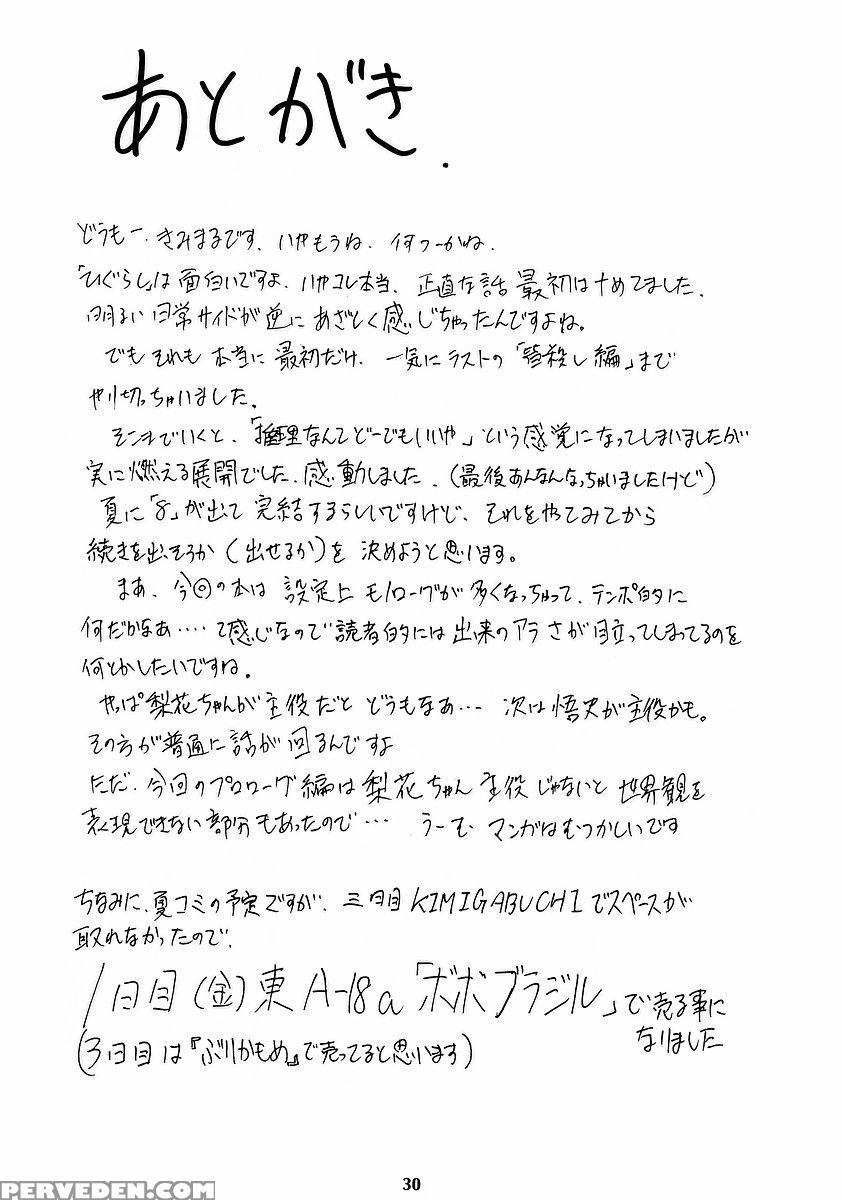 あとがき.
どうもー、きみまるです、いやもうね、何つーかね、
「ひぐらし」は面白いですよ、いやコレ本当、正直な話最初はナめてました、
明るい日常サイドが逆にあざとく感じちゃったんですよね。
でもそれも本当に最初だけ、一気にラストの「皆殺し編」まで
やり切っちゃいました。
そこまでいくと、「推理なんてどーでもいいや」という感覚になってしまいましたが
実に燃える展開でした、感動しました、(最後あんなんなっちゃいましたけど)
夏に「8」が出て完結するらしいですけど、それをやってみてから
続きを出そうか(出せるか)を決めようと思います。
まあ、今回の本は設定上モノローグが多くなっちゃって、テンポ的に
何だかなあ‥‥て感じなので読者的には出来のアラさが目立ってしまってるのを
何とかしたいですね。
やっぱ梨花ちゃんが主役だとどうもなあ… 次は悟史が主役かも。
その方が普通に話が回るんですよ
ただ、今回のプロローグ編は梨花ちゃん主役じゃないと世界観を
表現できない部分もあったので… うーむ マンガはむつかしいです
ちなみに、夏コミの予定ですが、三日目KIMIGABUCHIでスペースが
取れなかったので、
1日目(金)東A-18a「ボボブラジル」で売る事に
なりました
(3日目は『ぶりかもめ』で売ってると思います)
30
PERVEDEN.COM